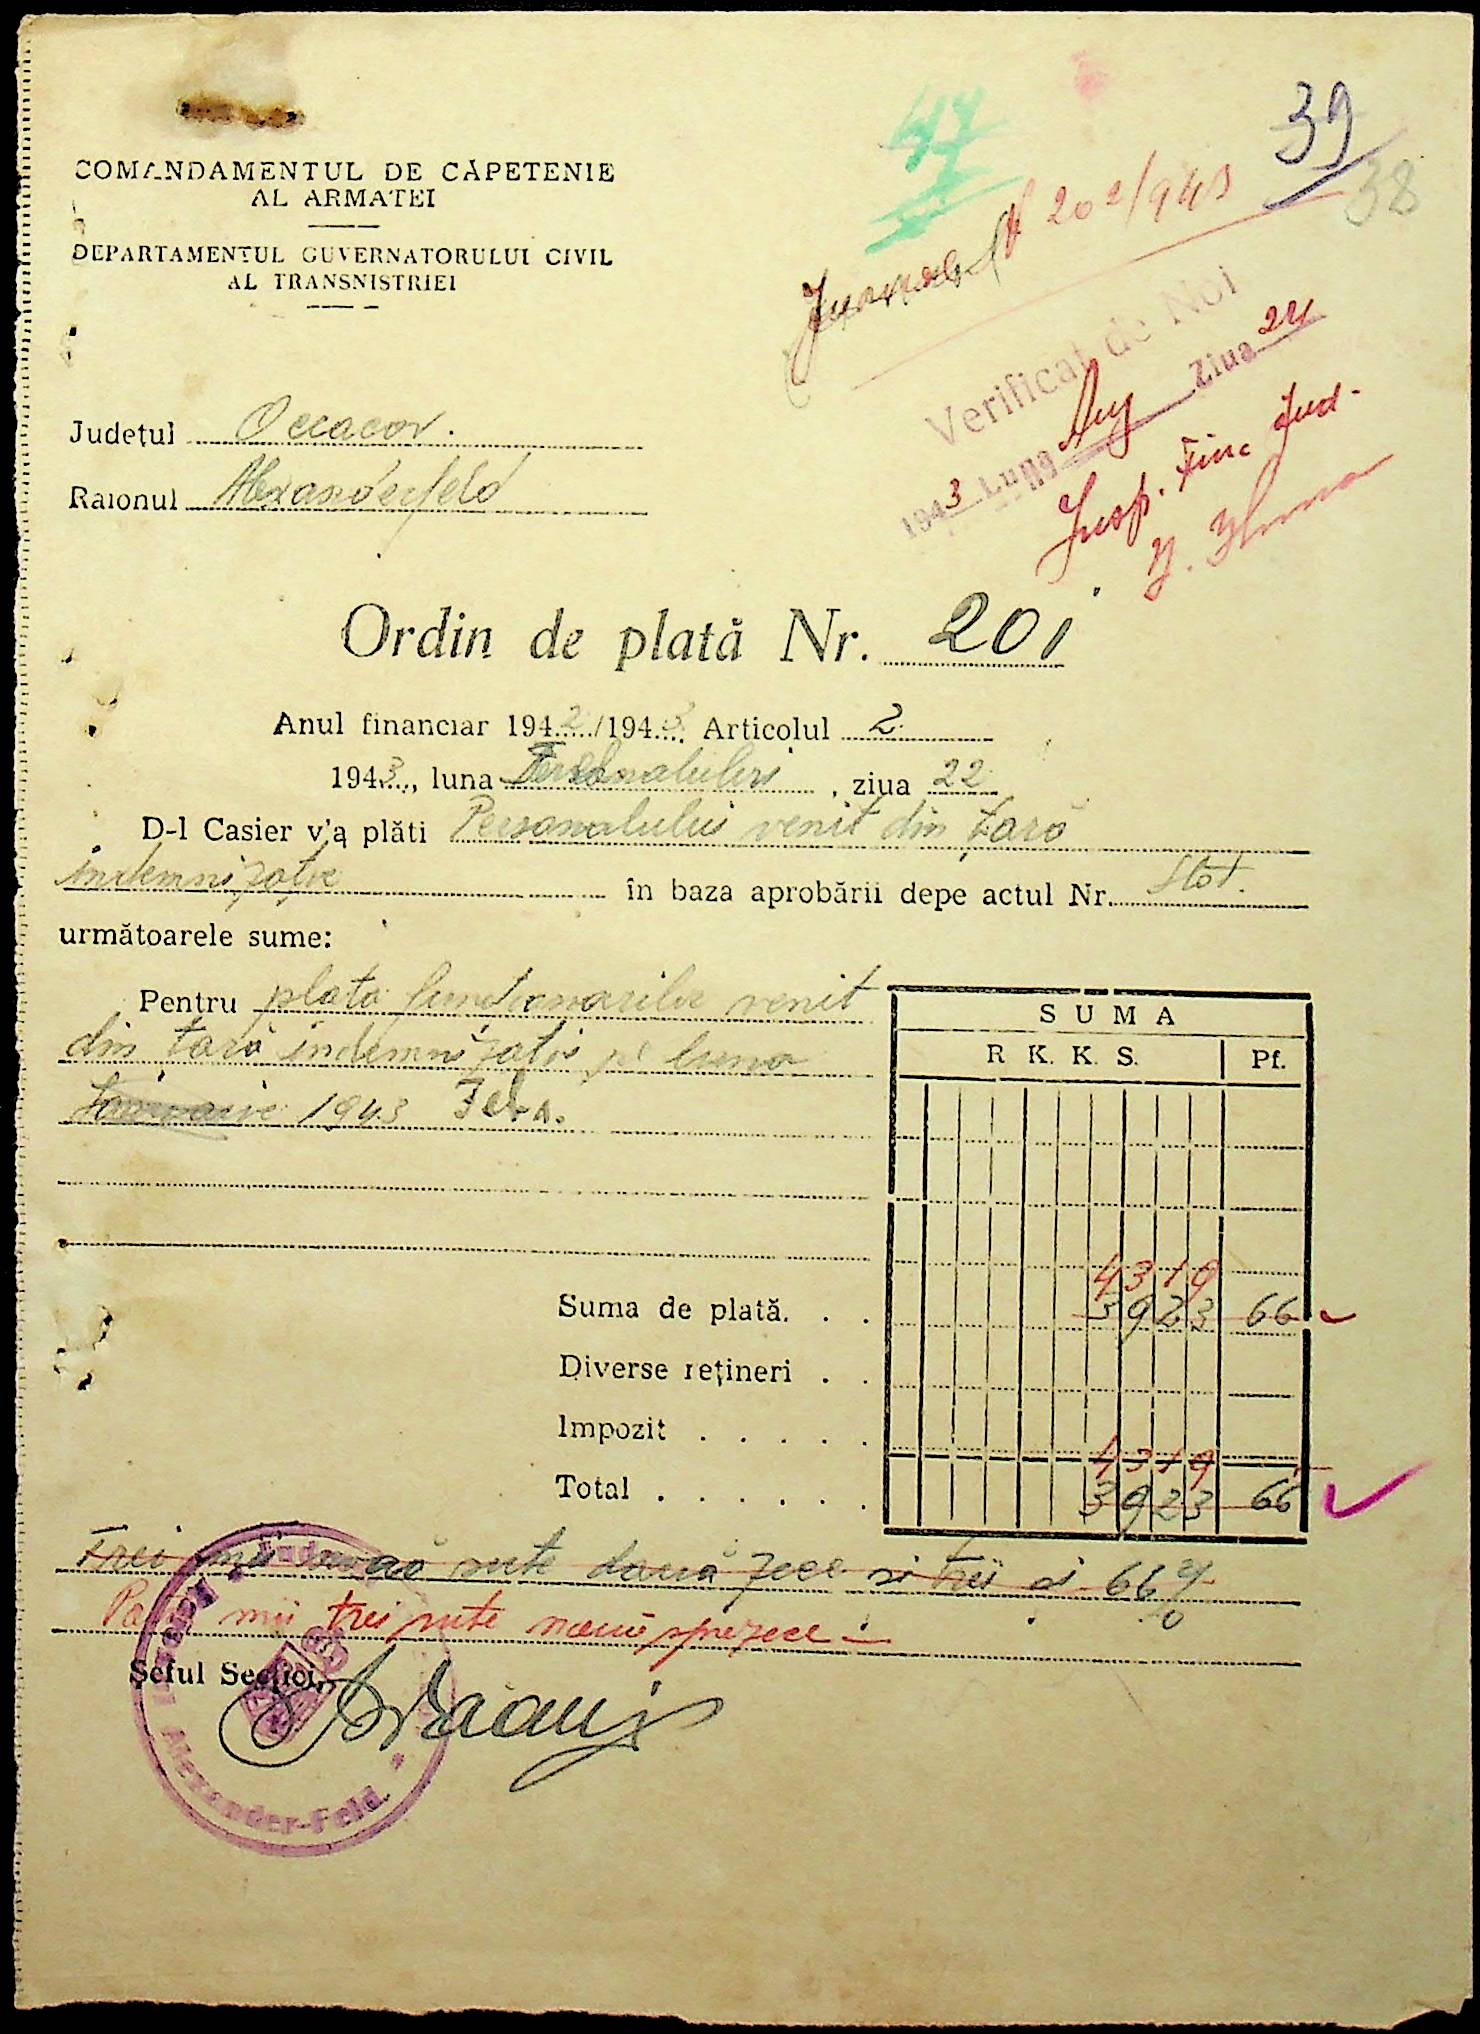 47
39
38
COMANDAMENTUL DE CĂPETENIE
AL ARMATEI
DEPARTAMENTUL GUVERNATORULUI CIVIL
AL TRANSNISTRIEI
№ 202/943
Verificat de Noi
1943 Luna Aug Ziua 24
Insp. Finc Jud.
Județul Oceacov.
Raionul Alexanderfeld
Ordin de plată Nr. 201
Anul financiar 1942/1943 Articolul 2
1943, luna , ziua 22
D-l Casier v'a plăti Personalului venit din țară
indemnizație în baza aprobării depe actul Nr. Stat.
următoarele sume:
Pentru plata funcționarilor venit
din țară indemnizație pe luna
Ianuarie 1943 Febr.
SUMA
R. K. K. S. Pf.
4319
Suma de plată. . . 3923 66
Diverse rețineri . .
Impozit . . . . .
4319
Total . . . . . . 3923 66
Trei mii nouă sute două zeci și trei și 66 %
Patru mii trei sute nouă sprezece
Șeful Secției,
Alexander-Feld.